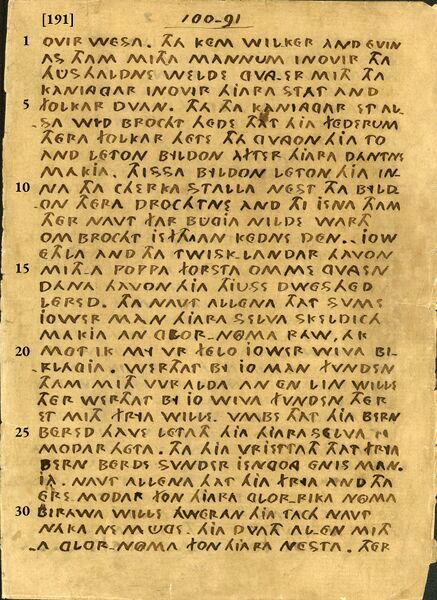 [191]
100-91
1 OVIR WESA. THA KEM WILKER AND EVIN
AS THAM MITH MANNUM INOVIR THA
HUSHALDNE WELDE GVNG-ER MITH THA
KANINGAR INOVIR HIARA STAT AND
5 FOLKAR DVAN. THA THA KANINGAR ET AL-
SA WYD BROCHT HEDE THAT HIA FEDERUM
THERA FOLKAR HETE THA GVNGON HIA TO
AND LETON BYLDON AFTER HIARA DANTNE
MAKIA. THISSA BYLDON LETON HIA IN-
10 NA THA CHERKA STALLA NEST THA BYLD-
ON THERA DROCHTNE AND THI ISNA THAM
THER NAVT FAR BUGIA NILDE WARTH
OM BROCHT ISFTHA AN KEDNE DEN.. IOW
ETHLA AND THA TWISK-LANDAR HAVON
15 MITH-A POPPA FORSTA OMME GVNGEN
DANA HAVON HIA THIUSS DWESHED
LERED. THA NAVT ALLENA THAT SUME
IOWER MAN HIARA SELVA SKELDICH
MAKIA AN GLOR-NOMA RAW, AK
20 MOT IK MY VR FELO IOWER WIVA BI-
KLAGIA. WERTHAT BY IO MAN FUNDEN
THAM MITH WRALDA AN EN LIN WILLE
THER WERTHAT BY IO WIVA FUNDEN THER
ET MITH FRYA WILLE. VMBE THAT HIA BERN
25 BERED HAVE LETATH HIA HIARA SELVA
MODAR HETA. THA HIA VRIETTATH THAT FRYA
BERN BERDE SUNDER ISNGONG ENIS MAN.
IA. NAVT ALLENA THAT HIA FRYA AND THA
ERE-MODAR FON HIARA GLOR-RIKA NOMA
30 BIRAWA WILLE HWERAN HIA TACH NAVT
NAKA NE MUGE. HIA DVATH ALLEN MITH
-A GLOR-NOMA FON HIARA NESTA. THER